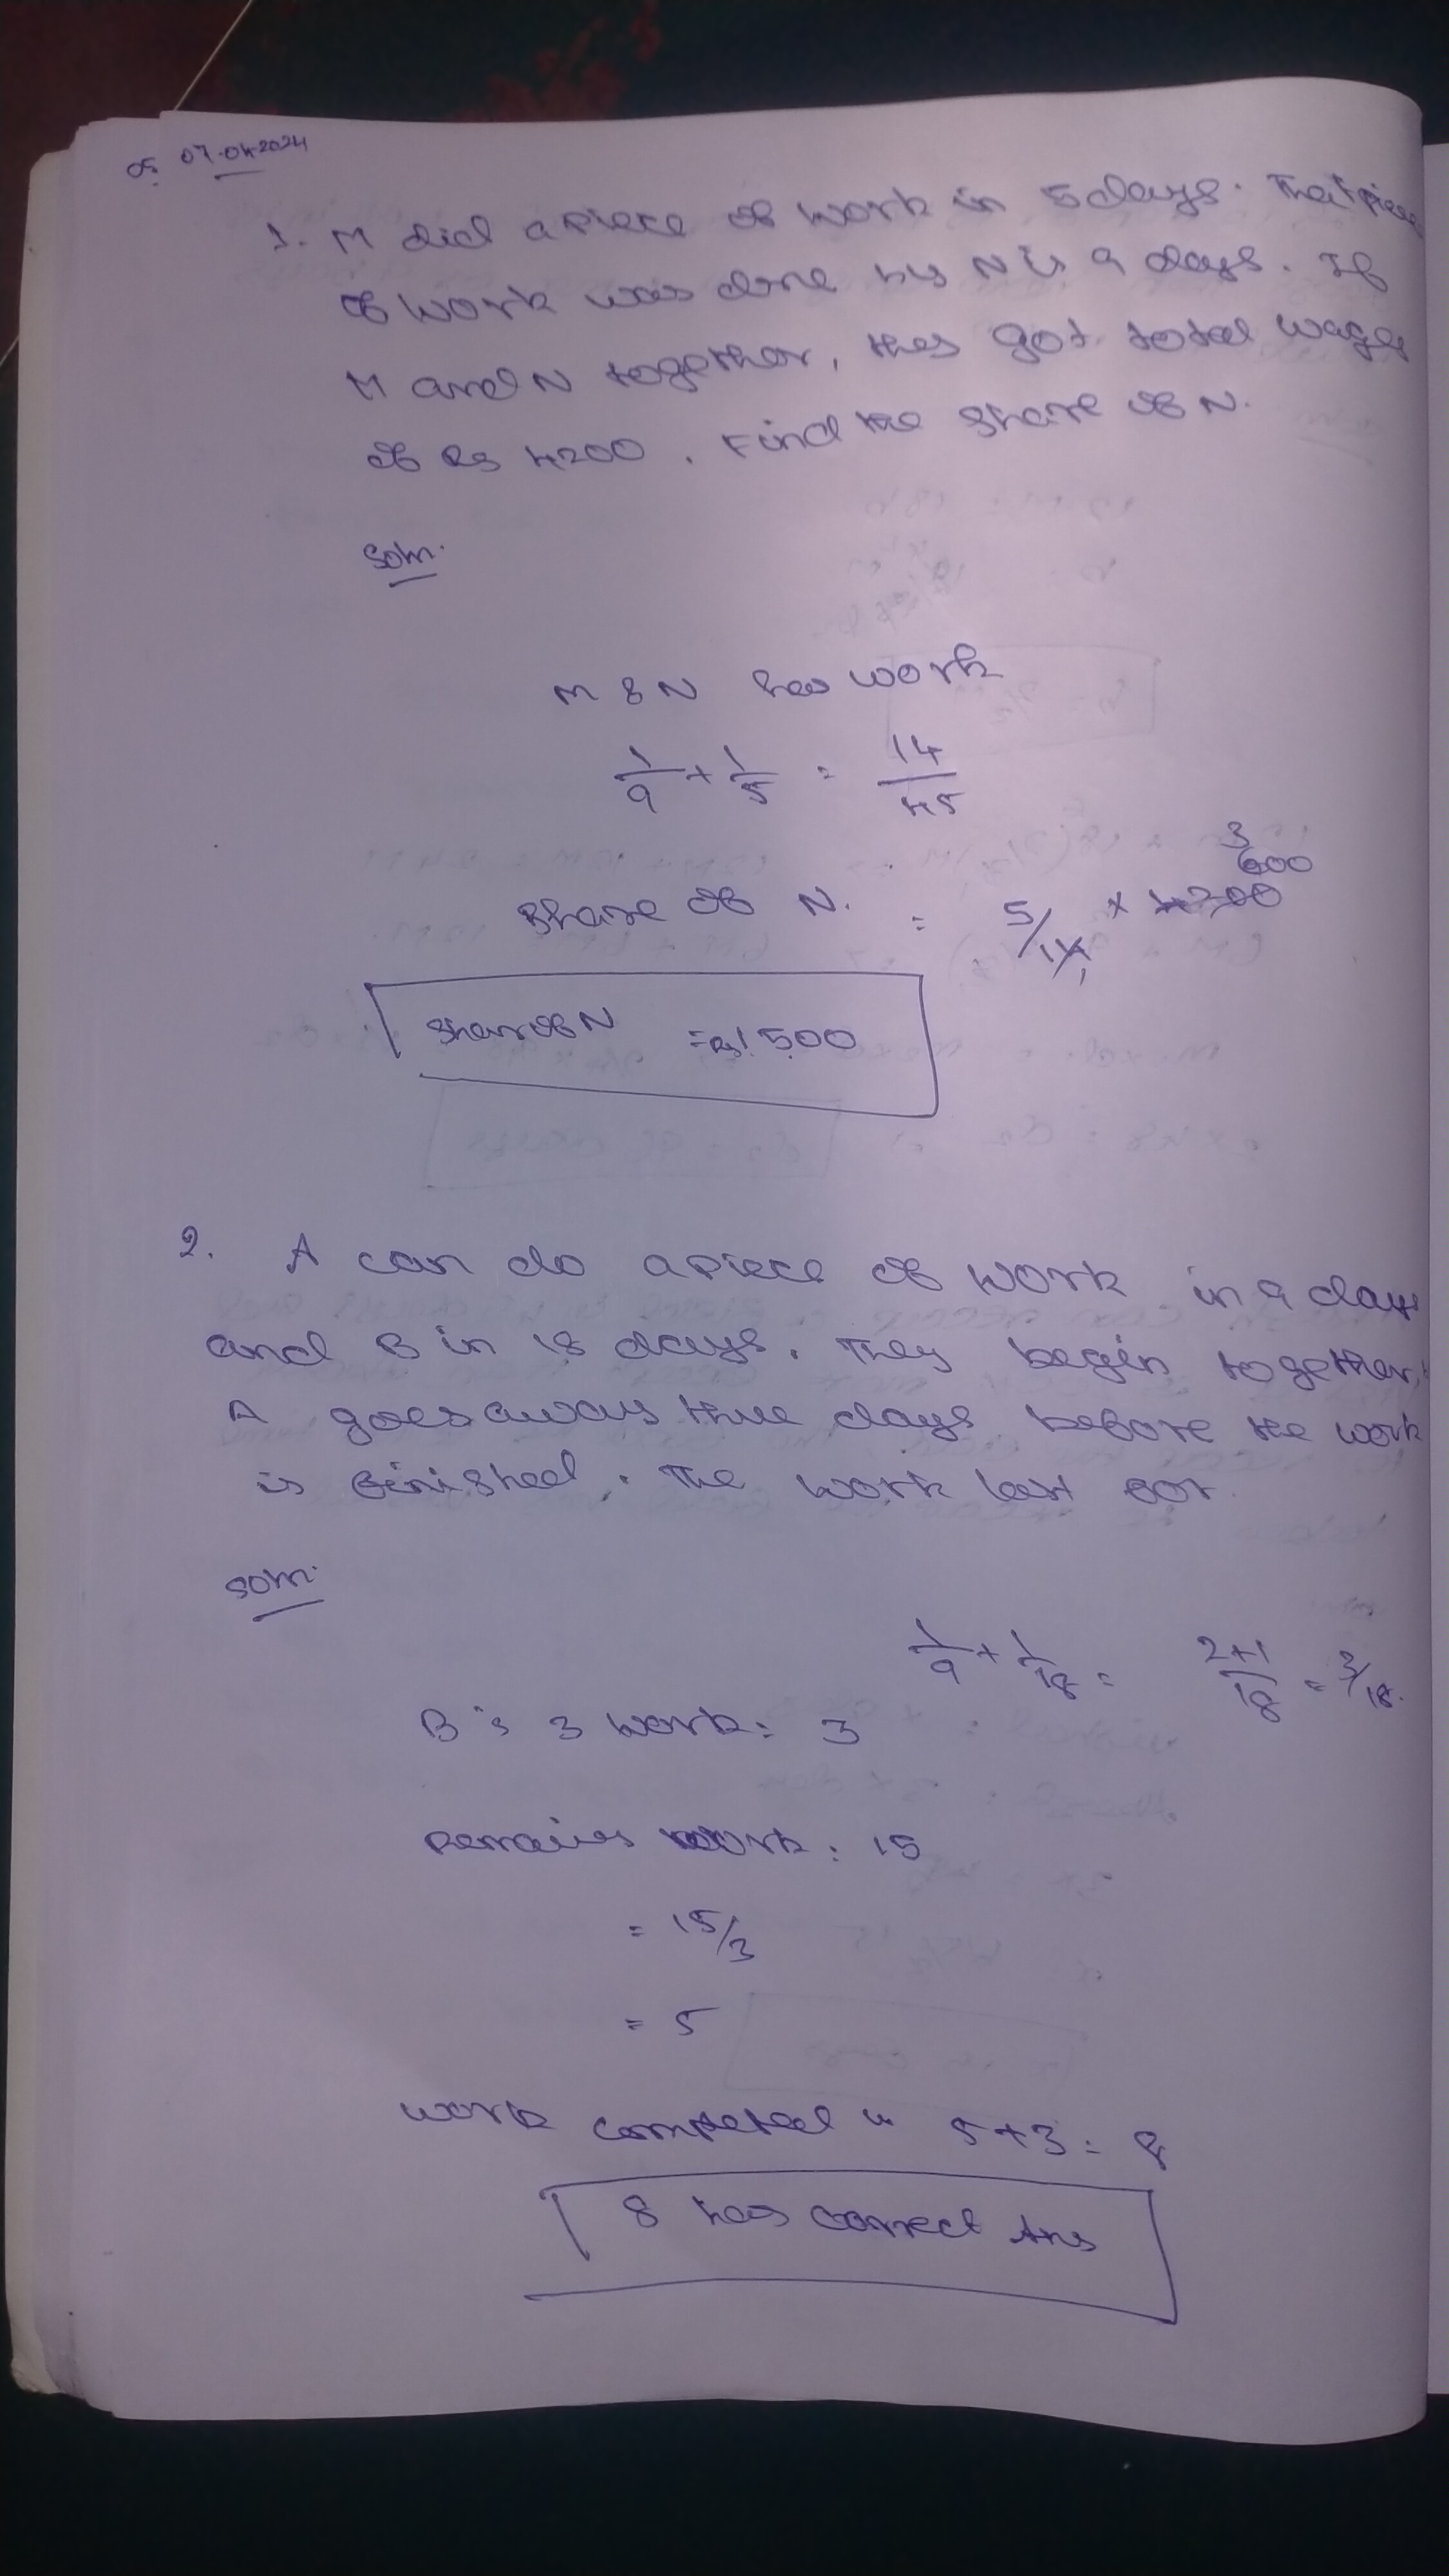 05. 07.04.2024
1. M did a piece of work in 5 days. That piece
of work was done by N is 9 days. If
M and N together, they got total wages
of Rs 4200. Find the share of N.
Soln.
M & N has work
1/9 + 1/5 = 14/45
3
600
Share of N. = 5/14 × 4200
1
Share of N = Rs 1500
2. A can do a piece of work in 9 days
and B in 18 days. They begin together,
A goes away three days before the work
is finished. The work last for
Soln.
1/9 + 1/18 = 2+1/18 = 3/18.
B's 3 work = 3
Remains work = 15
= 15/3
= 5
work completed in 5+3 = 8
8 has correct Ans